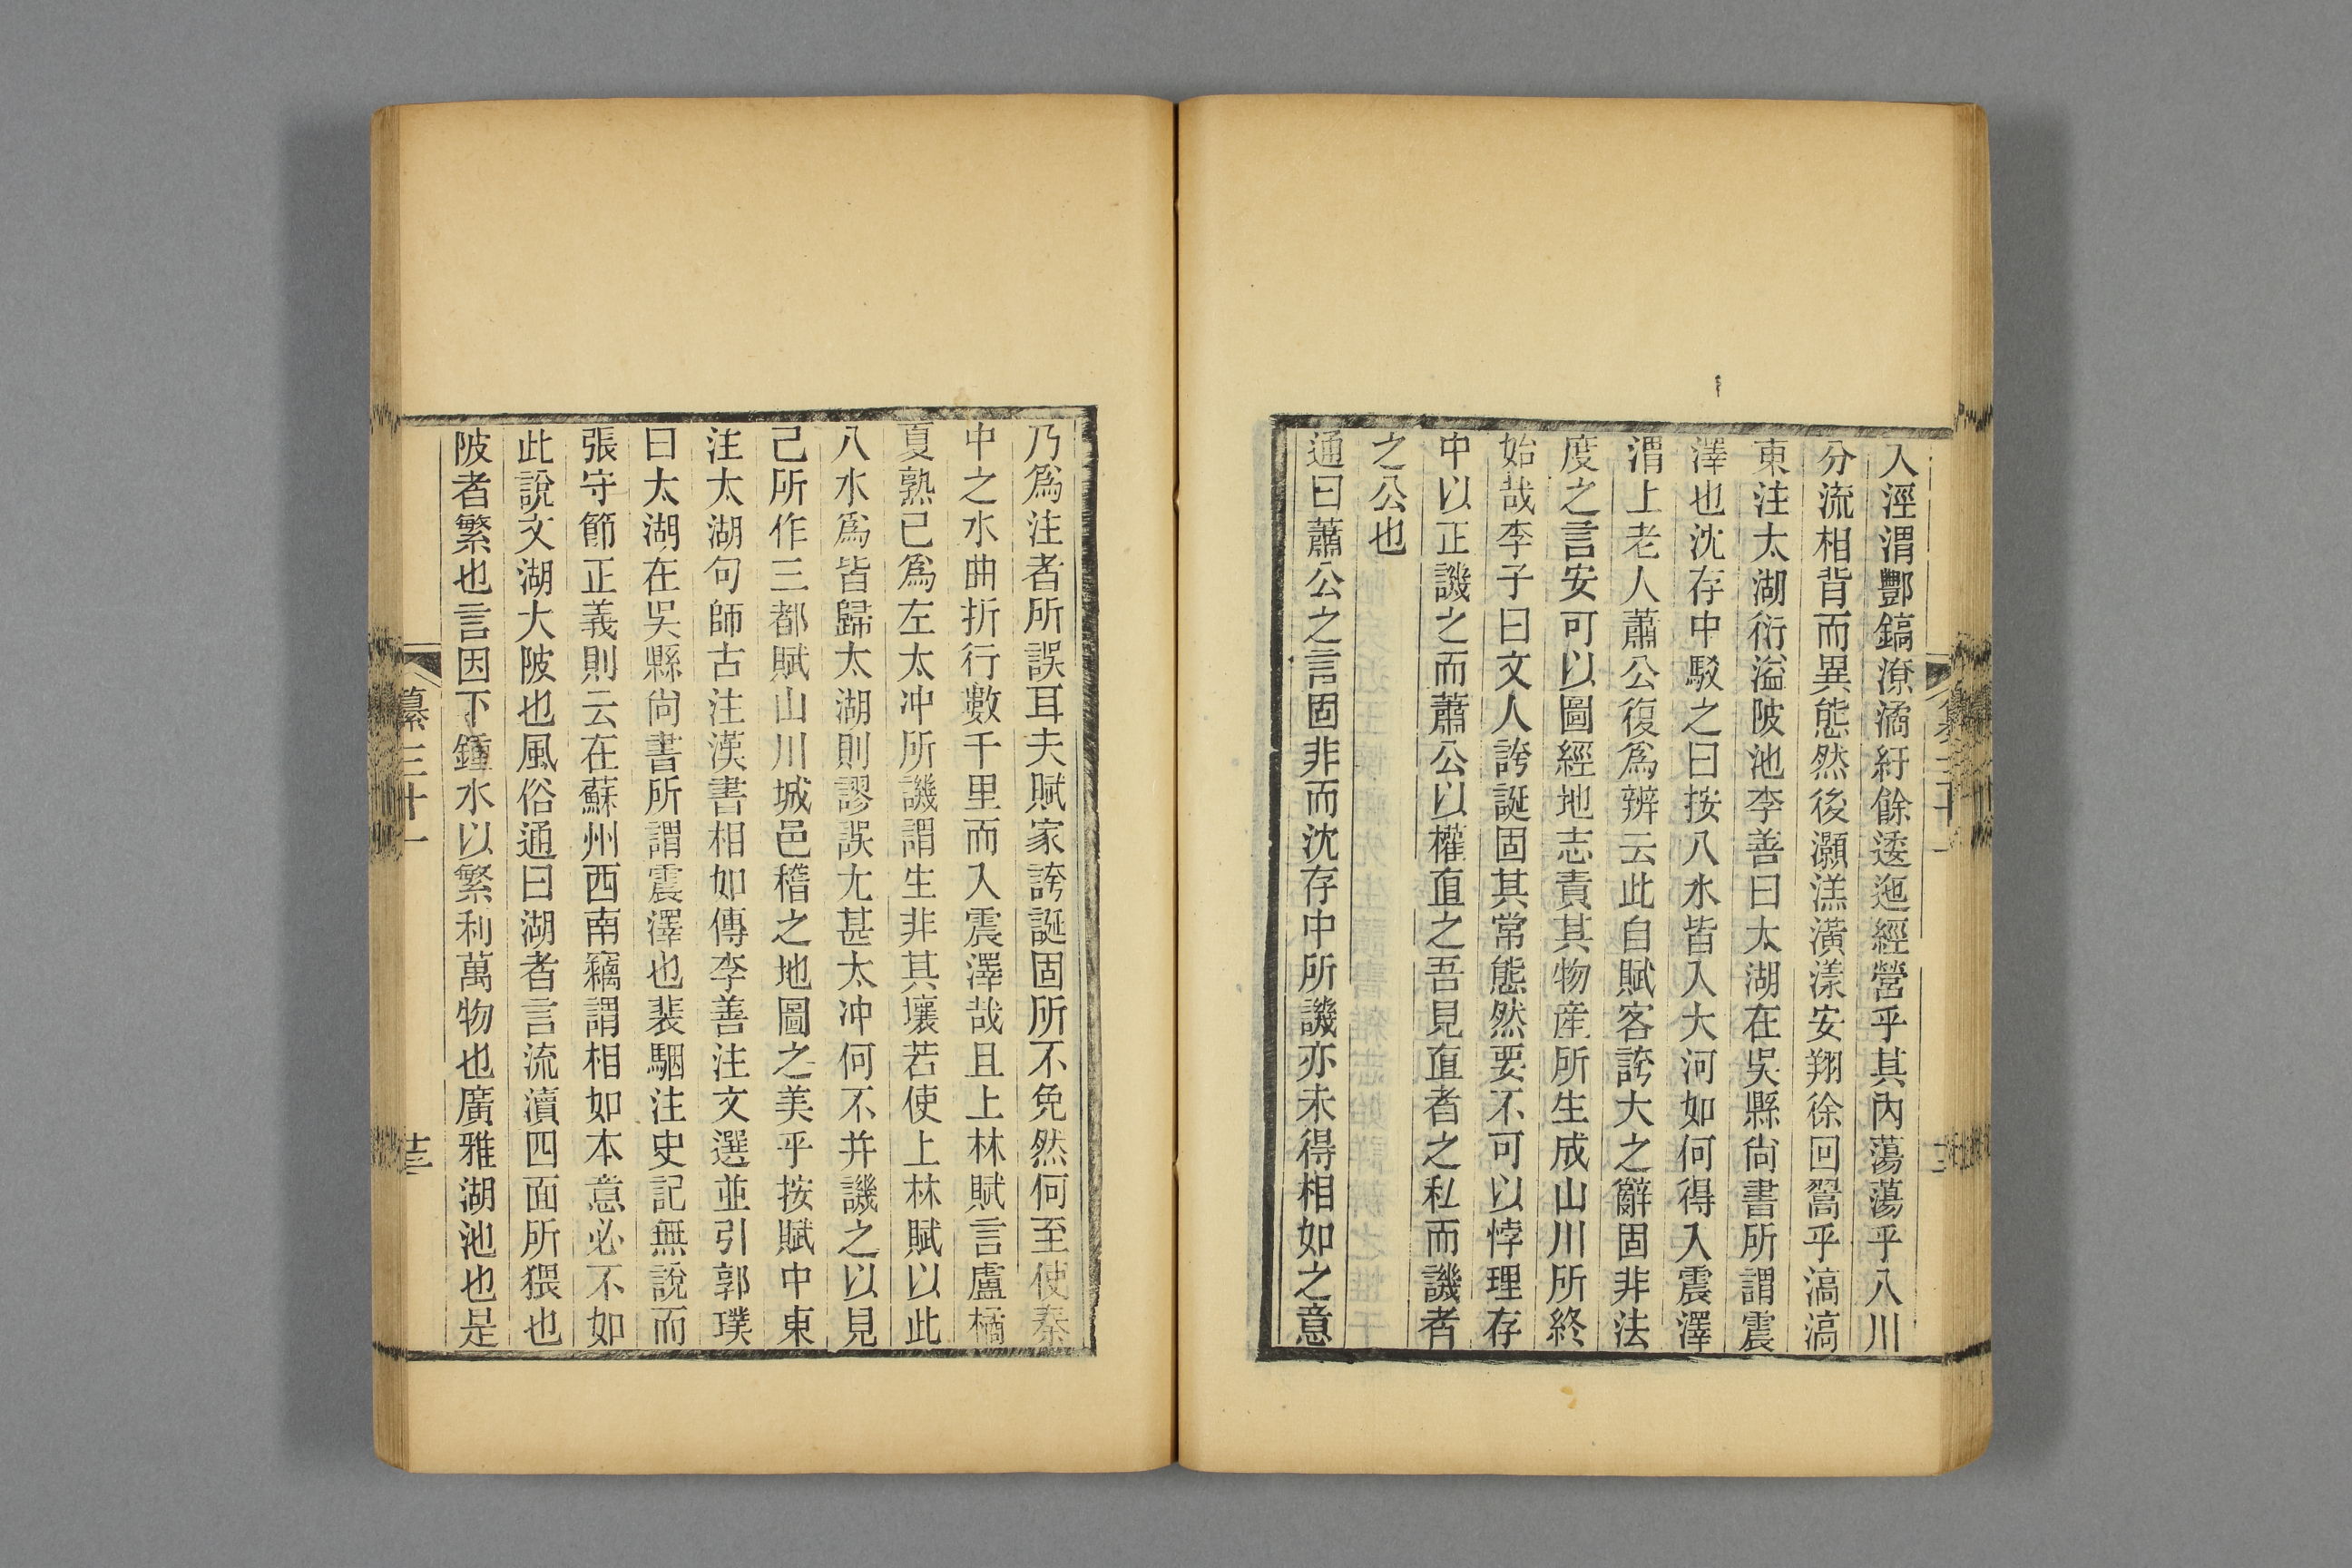 入涇渭酆鎬潦潏紆餘逶迤經營乎其內蕩蕩乎八川
分流相背而異態然後灝溔潢漾安翔徐回翯乎滈滈
東注太湖衍溢陂池李善曰太湖在吳縣尚書所謂震
澤也沈存中駁之曰按八水皆入大河如何得入震澤
渭上老人蕭公復爲辨云此自賦客誇大之辭固非法
度之言安可以圖經地志責其物産所生成山川所終
始哉李子曰文人誇誕固其常態然要不可以悖理存
中以正譏之而蕭公以權直之吾見直者之私而譏者
之公也
通曰蕭公之言固非而沈存中所譏亦未得相如之意
乃爲注者所誤耳夫賦家誇誕固所不免然何至使秦
中之水曲折行數千里而入震澤哉且上林賦言盧橘
夏熟已爲左太冲所譏謂生非其壤若使上林賦以此
八水爲皆歸太湖則謬誤尤甚太冲何不并譏之以見
己所作三都賦山川城邑稽之地圖之美乎按賦中東
注太湖句師古注漢書相如傳李善注文選並引郭璞
曰太湖在吳縣尚書所謂震澤也裴駰注史記無說而
張守節正義則云在蘇州西南竊謂相如本意必不如
此說文湖大陂也風俗通曰湖者言流瀆四面所猥也
陂者繁也言因下鍾水以繁利萬物也廣雅湖池也是
纂三十一